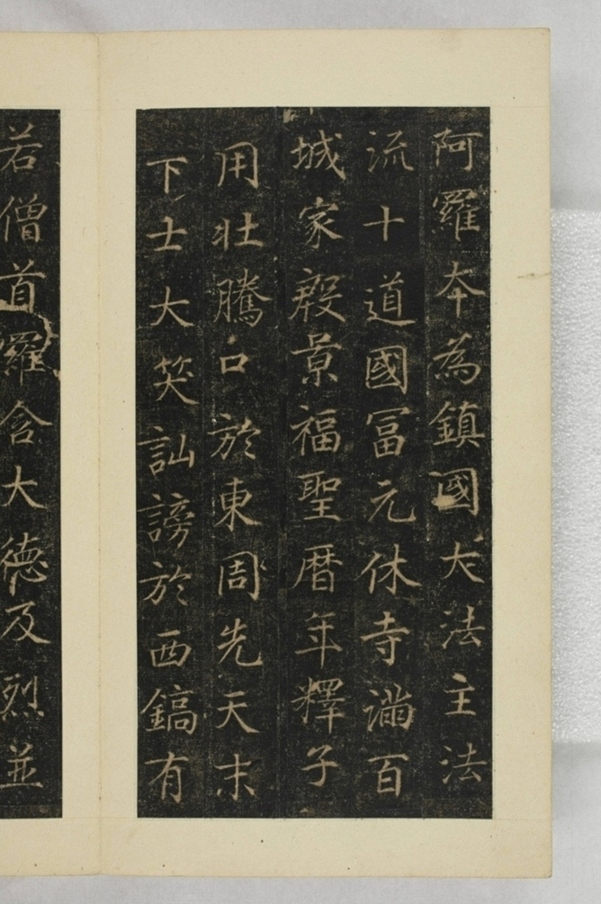 阿羅本為鎮國大法主法
流十道國冨元休寺滿百
城家殷景福聖曆年釋子
用壯騰口於東周先天末
下士大笑訕謗於西鎬有
若僧首羅含大德及烈並